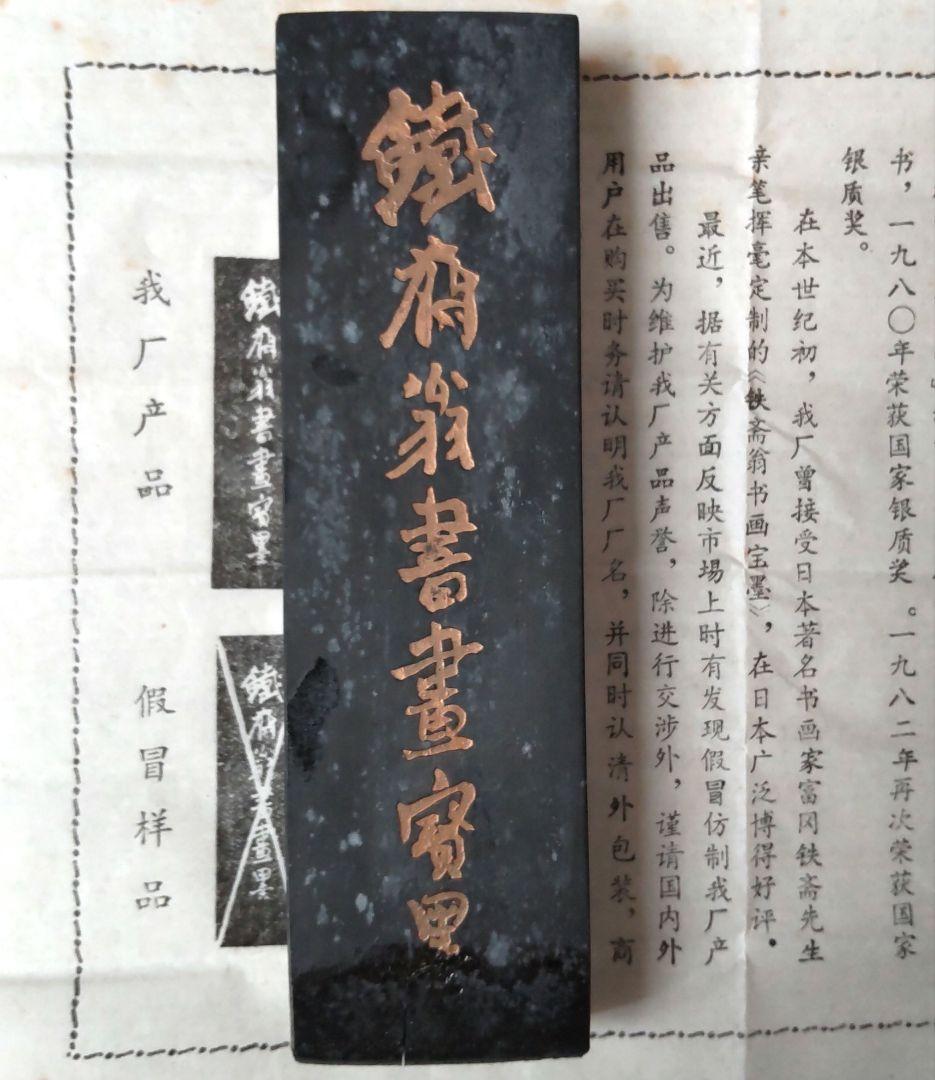 书，一九八〇年荣获国家银质奖。一九八二年再次荣获国家
银质奖。
在本世纪初，我厂曾接受日本著名书画家富冈铁斋先生
亲笔挥毫定制的《铁斋翁书画宝墨》，在日本广泛博得好评。
最近，据有关方面反映市場上时有发现假冒仿制我厂产
品出售。为维护我厂产品声誉，除进行交涉外，谨请国内外
用户在购买时务请认明我厂厂名，并同时认清外包装，商
鐵斎翁書畫寳墨
鐵斎翁書畫寳墨
我厂产品
鐵斎翁書畫墨
假冒样品